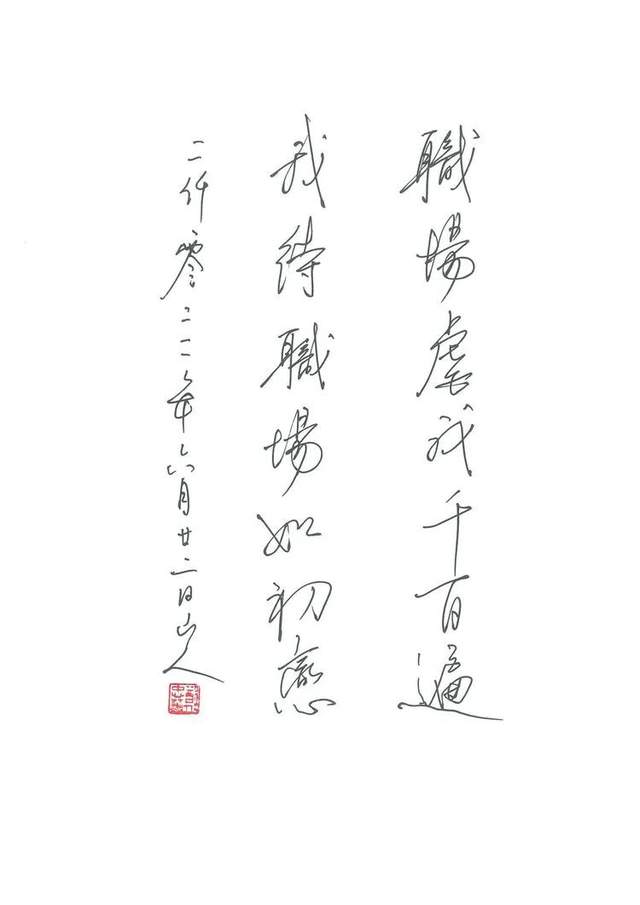 職場虐我千百遍
我待職場如初戀
二仟零二二年六月廿二日山人